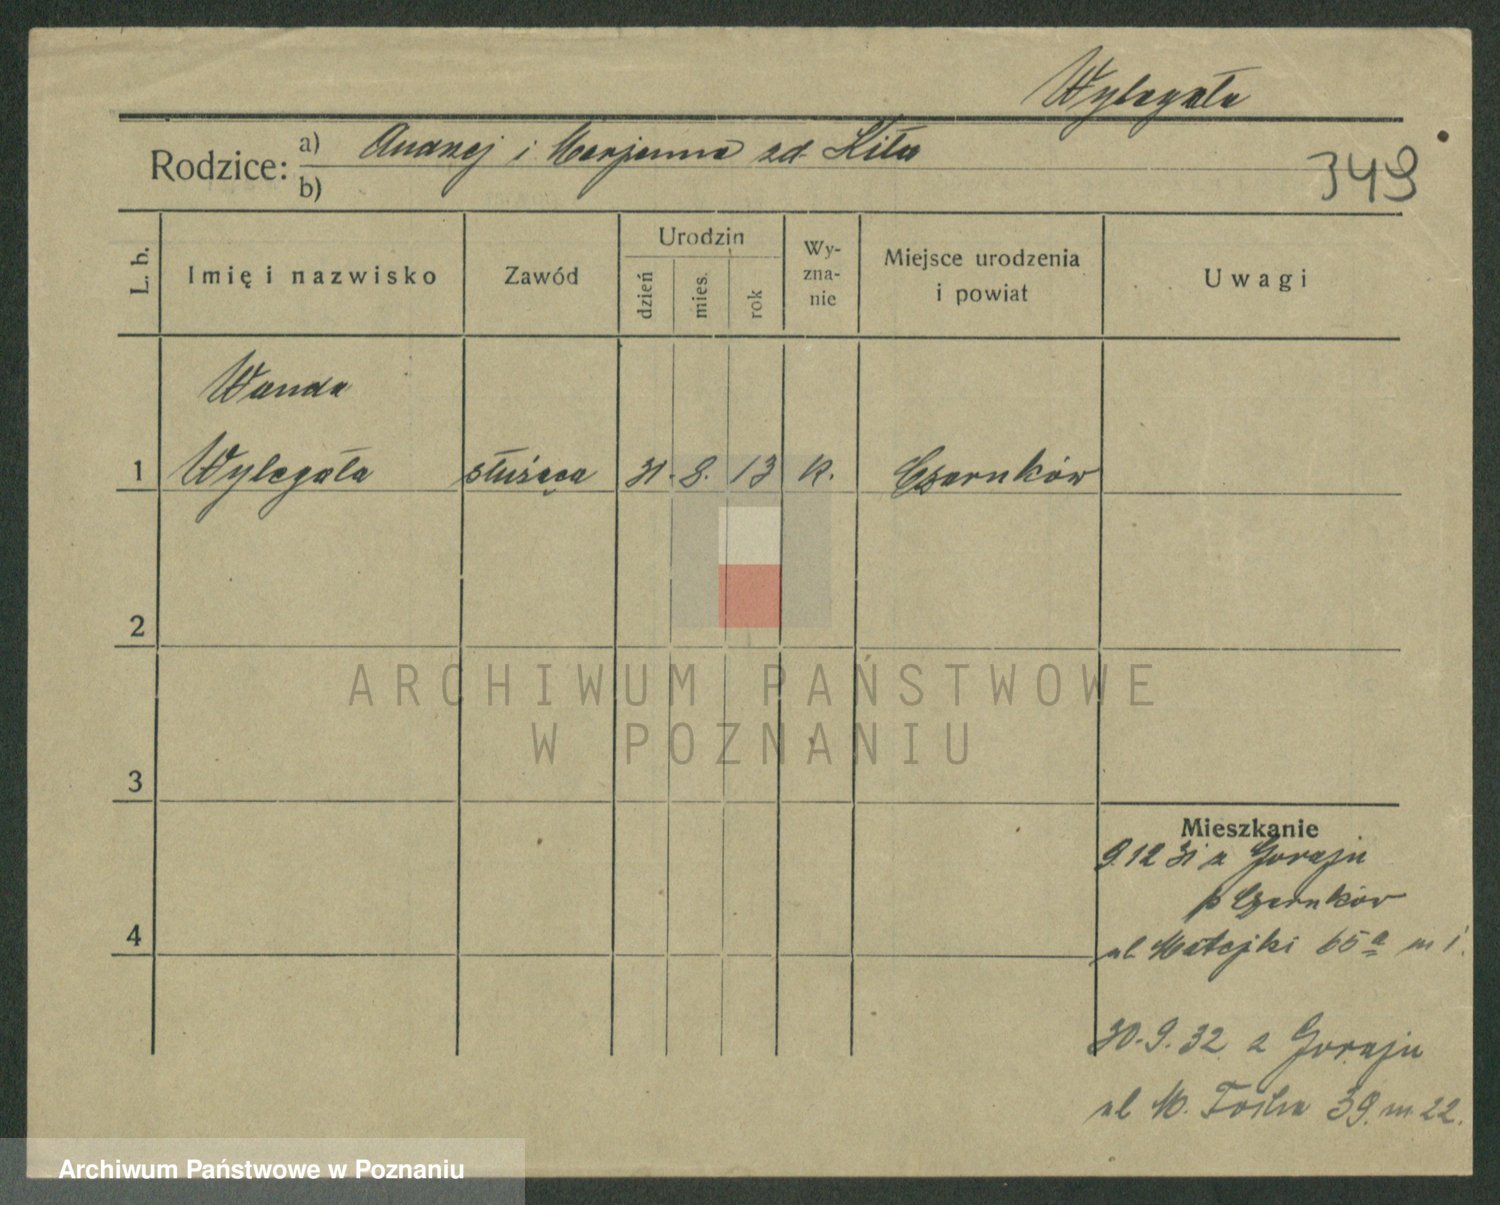 Wylegała
Rodzice: a) Andrzej i Marjanna zd. Kita
b)
349
L. b.
Imię i nazwisko
Zawód
Urodzin
dzień
mies.
rok
Wy-
zna-
nie
Miejsce urodzenia
i powiat
Uwagi
Wanda
1 Wylegała służąca 31. 8. 13 k. Czarnków
2
ARCHIWUM PAŃSTWOWE
W POZNANIU
3
Mieszkanie
9.12 31 z Goraju
p Czarnków
4
ul Matejki 65a m 1.
30.9.32 z Goraju
ul M. Focha 39. m 22.
Archiwum Państwowe w Poznaniu